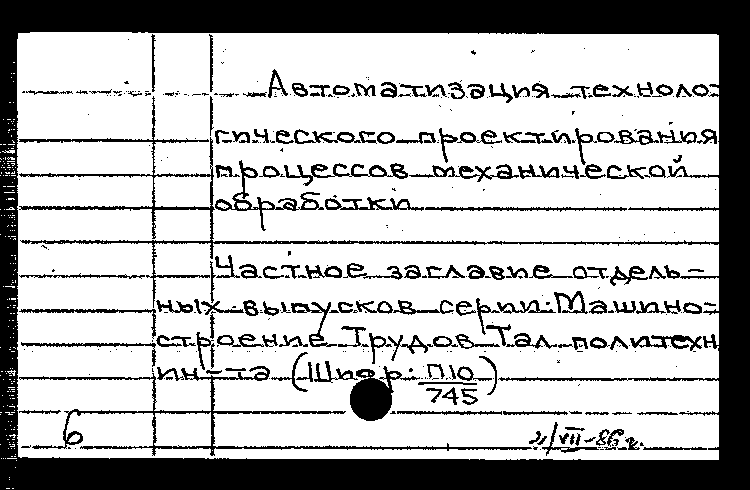 Автоматизация техноло=
гического проектирования
процессов механической
обработки
Частное заглавие отдель-
ных выпусков серии: Машино=
строение Трудов Тал политехн
ин-та (Шифр: П10/745)
6
2/VII-86 г.